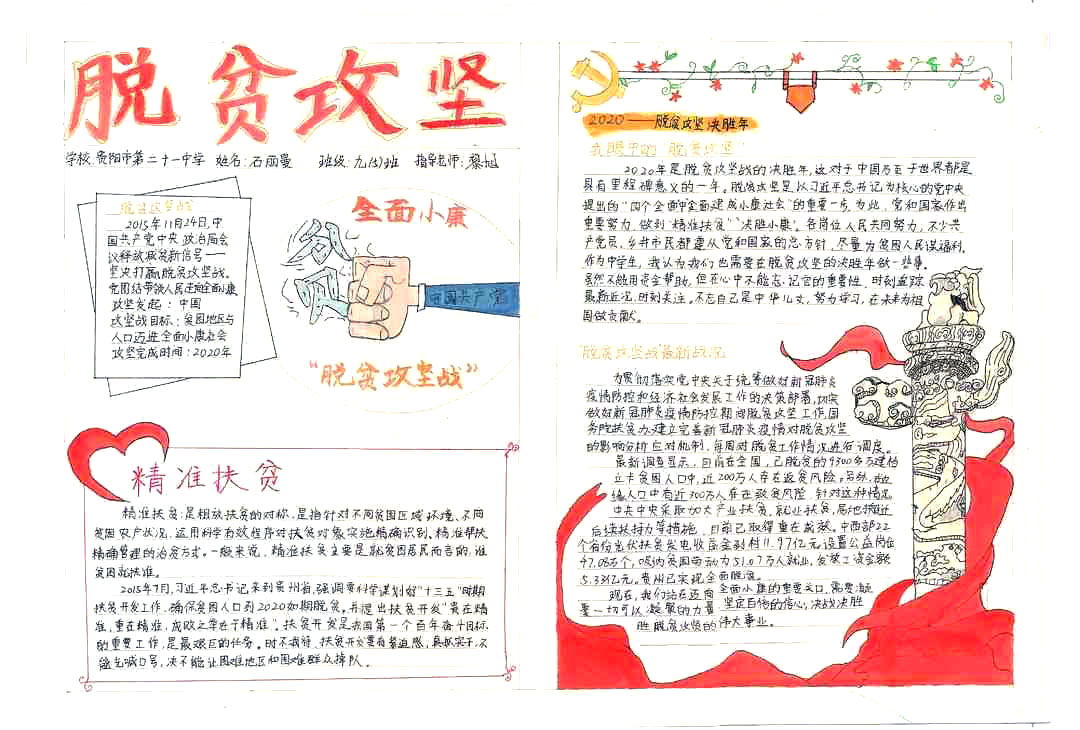 脱贫攻坚
学校:贵阳市第二十一中学 姓名:石丽曼 班级:九(5)班 指导老师:黎旭
脱贫攻坚战
2015年11月24日,中
国共产党中央政治局会
议释放脱贫新信号——
坚决打赢脱贫攻坚战。
党团结带领人民迈向全面小康
攻坚发起:中国
攻坚战目标:贫困地区与
人口迈进全面小康社会
攻坚完成时间:2020年
全面小康
贫
中国共产党
“脱贫攻坚战”
精准扶贫
精准扶贫:是粗放扶贫的对称,是指针对不同贫困区域环境、不同
贫困农户状况,运用科学有效程序对扶贫对象实施精确识别、精准帮扶
精确管理的治贫方式。一般来说,精准扶贫主要是就贫困居民而言的,谁
贫困就扶谁。
2015年7月,习近平总书记来到贵州省,强调要科学谋划好“十三五”时期
扶贫开发工作,确保贫困人口到2020如期脱贫。并提出扶贫开发“贵在精
准,重在精准,成败之举在于精准”。扶贫开发是我国第一个百年奋斗目标
的重要工作,是最艰巨的任务。时不我待,扶贫开发要有紧迫感,真抓实干,不
能光喊口号,决不能让困难地区和困难群众掉队。
2020——脱贫攻坚决胜年
我眼中的“脱贫攻坚”
2020年是脱贫攻坚战的决胜年,这对于中国乃至于世界都是
具有里程碑意义的一年。脱贫攻坚是以习近平总书记为核心的党中央
提出的“四个全面”中全面建成小康社会”的重要一步,为此,党和国家作出
重要努力,做到“精准扶贫”“决胜小康”。各岗位人民共同努力,不少共
产党员,乡井市民都遵从党和国家的总方针,尽量为贫困人民谋福利。
作为中学生,我认为我们也需要在脱贫攻坚的决胜年做一些事。
虽然不能用资金帮助,但在心中不能忘记它的重要性、时刻追踪
最新近况,时刻关注,不忘自己是中华儿女,努力学习,在未来为祖
国做贡献。
“脱贫攻坚战”最新战况
为贯彻落实党中央关于统筹做好新冠肺炎
疫情防控和经济社会发展工作的决策部署,切实
做好新冠肺炎疫情防控期间脱贫攻坚工作,国
务院扶贫办建立完善新冠肺炎疫情对脱贫攻坚
的影响分析应对机制,每周对脱贫工作情况进行调度。
最新调查显示,目前在全国,已脱贫的9300多万建档
立卡贫困人口中,近200万人存在返贫风险。另外,边
缘人口中有近300万人存在致贫风险,针对这种情况
中共中央采取加大产业扶贫,就业扶贫,易地搬迁
后续扶持力等措施,目前已取得重在成效。中西部22
个省份光伏扶贫发电收益金到村11.97亿元,设置公益岗位
47.08万个,吸纳贫困劳动力51.07万人就业,发放工资金额
5.33亿元。贵州已实现全面脱贫。
现在,我们站在迈向全面小康的重要关口,需要凝
聚一切可以凝聚的力量 坚定自信的信心,决战决胜
胜脱贫攻坚的伟大事业。